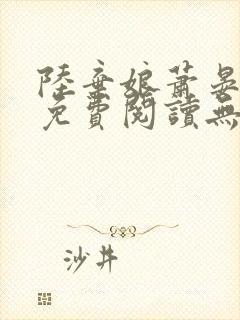 陸棄娘蕭晏
免費閱讀無
沙井